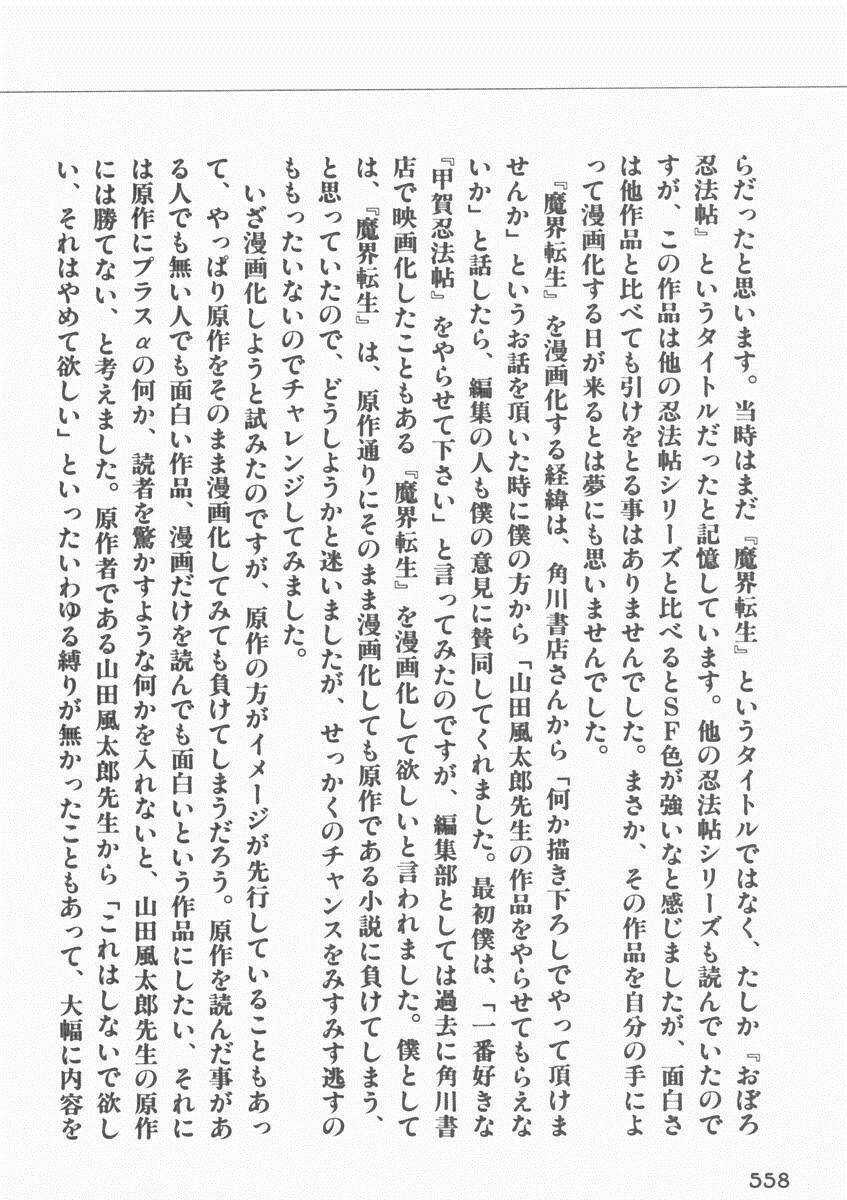 らだったと思います。当時はまだ『魔界転生』というタイトルではなく、たしか『おぼろ
忍法帖』というタイトルだったと記憶しています。他の忍法帖シリーズも読んでいたので
すが、この作品は他の忍法帖シリーズと比べるとＳＦ色が強いなと感じましたが、面白さ
は他作品と比べても引けをとる事はありませんでした。まさか、その作品を自分の手によ
って漫画化する日が来るとは夢にも思いませんでした。
『魔界転生』を漫画化する経緯は、角川書店さんから「何か描き下ろしでやって頂けま
せんか」というお話を頂いた時に僕の方から「山田風太郎先生の作品をやらせてもらえな
いか」と話したら、編集の人も僕の意見に賛同してくれました。最初僕は、「一番好きな
『甲賀忍法帖』をやらせて下さい」と言ってみたのですが、編集部としては過去に角川書
店で映画化したこともある『魔界転生』を漫画化して欲しいと言われました。僕として
は、『魔界転生』は、原作通りにそのまま漫画化しても原作である小説に負けてしまう、
と思っていたので、どうしようかと迷いましたが、せっかくのチャンスをみすみす逃すの
ももったいないのでチャレンジしてみました。
いざ漫画化しようと試みたのですが、原作の方がイメージが先行していることもあっ
て、やっぱり原作をそのまま漫画化してみても負けてしまうだろう。原作を読んだ事があ
る人でも無い人でも面白い作品、漫画だけを読んでも面白いという作品にしたい、それに
は原作にプラスαの何か、読者を驚かすような何かを入れないと、山田風太郎先生の原作
には勝てない、と考えました。原作者である山田風太郎先生から「これはしないで欲し
い、それはやめて欲しい」といったいわゆる縛りが無かったこともあって、大幅に内容を
558